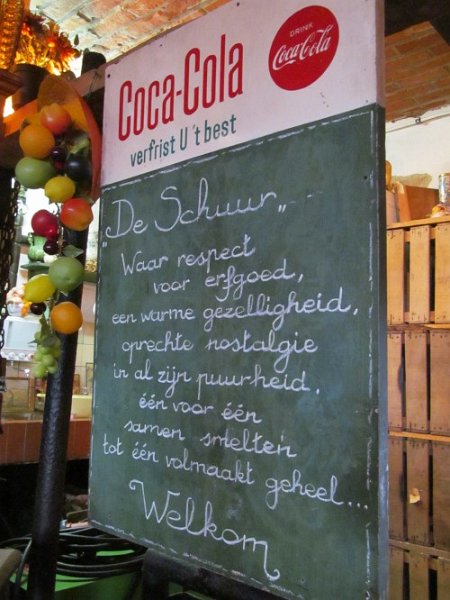 Coca-Cola
verfrist U 't best
DRINK
Coca-Cola
"De Schuur"
Waar respect
voor erfgoed,
een warme gezelligheid,
oprechte nostalgie
in al zijn puurheid,
één voor één
samen smelten
tot één volmaakt geheel...
Welkom